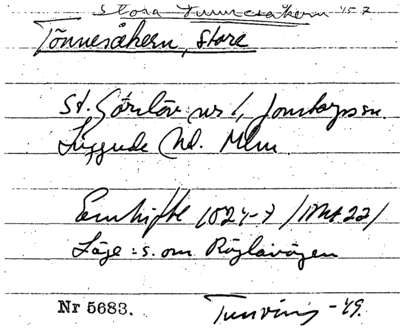 Stora Tunnesåkern 45 7
Tönnesåkern, Store
St. Görslöv nr 1, Jonstorps sn.
Luggude hd. Mlm.
Enskifte 1824-7 /
Läge: s. om Röglavägen
Nr 5683. Tunving -49.